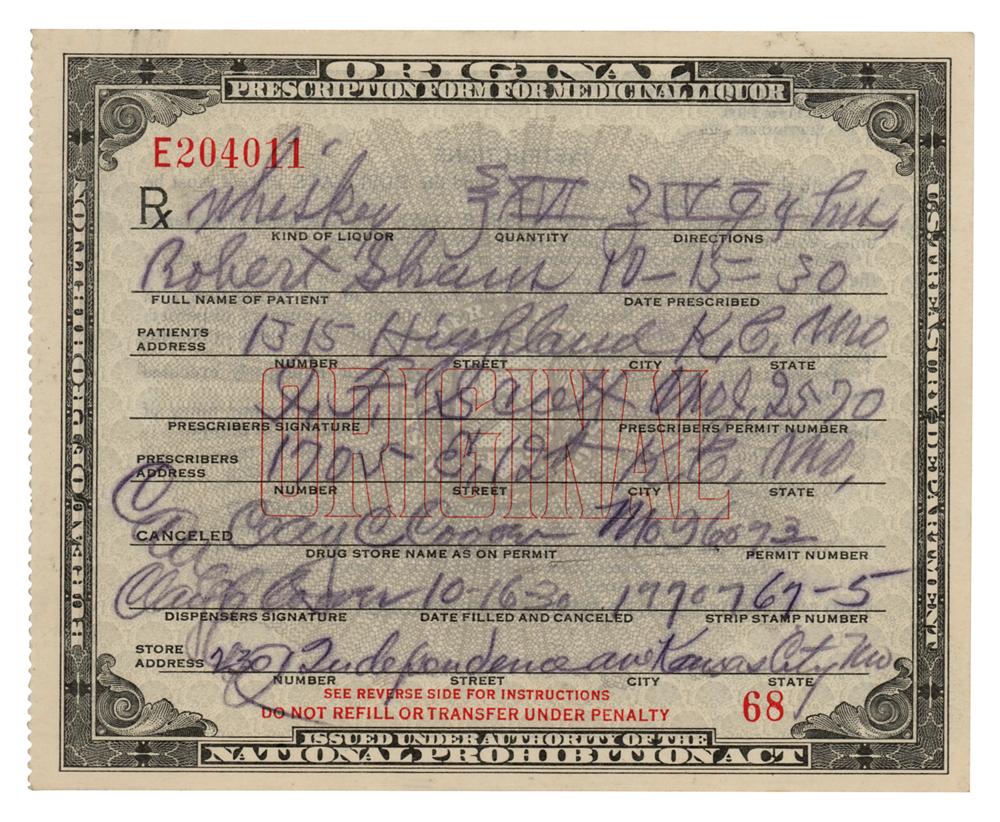 ORIGINAL
PRESCRIPTION FORM FOR MEDICINAL LIQUOR
E204011
Rx Whiskey ℥XVI ʒIV q 4 hrs
KIND OF LIQUOR QUANTITY DIRECTIONS
Robert 10-15-30
FULL NAME OF PATIENT DATE PRESCRIBED
PATIENTS ADDRESS 1315 Highland K.C. Mo
NUMBER STREET CITY STATE
Mo. 2570
PRESCRIBERS SIGNATURE PRESCRIBERS PERMIT NUMBER
PRESCRIBERS ADDRESS 1705 E. 12 K.C. Mo.
NUMBER STREET CITY STATE
ORIGINAL
CANCELED
DRUG STORE NAME AS ON PERMIT PERMIT NUMBER
10-16-30 1970767-5
DISPENSERS SIGNATURE DATE FILLED AND CANCELED STRIP STAMP NUMBER
STORE ADDRESS 2301 Independence ave Kansas City Mo
NUMBER STREET CITY STATE
SEE REVERSE SIDE FOR INSTRUCTIONS
DO NOT REFILL OR TRANSFER UNDER PENALTY
68
ISSUED UNDER AUTHORITY OF THE
NATIONAL PROHIBITION ACT
BUREAU OF PROHIBITION
U.S. TREASURY DEPARTMENT